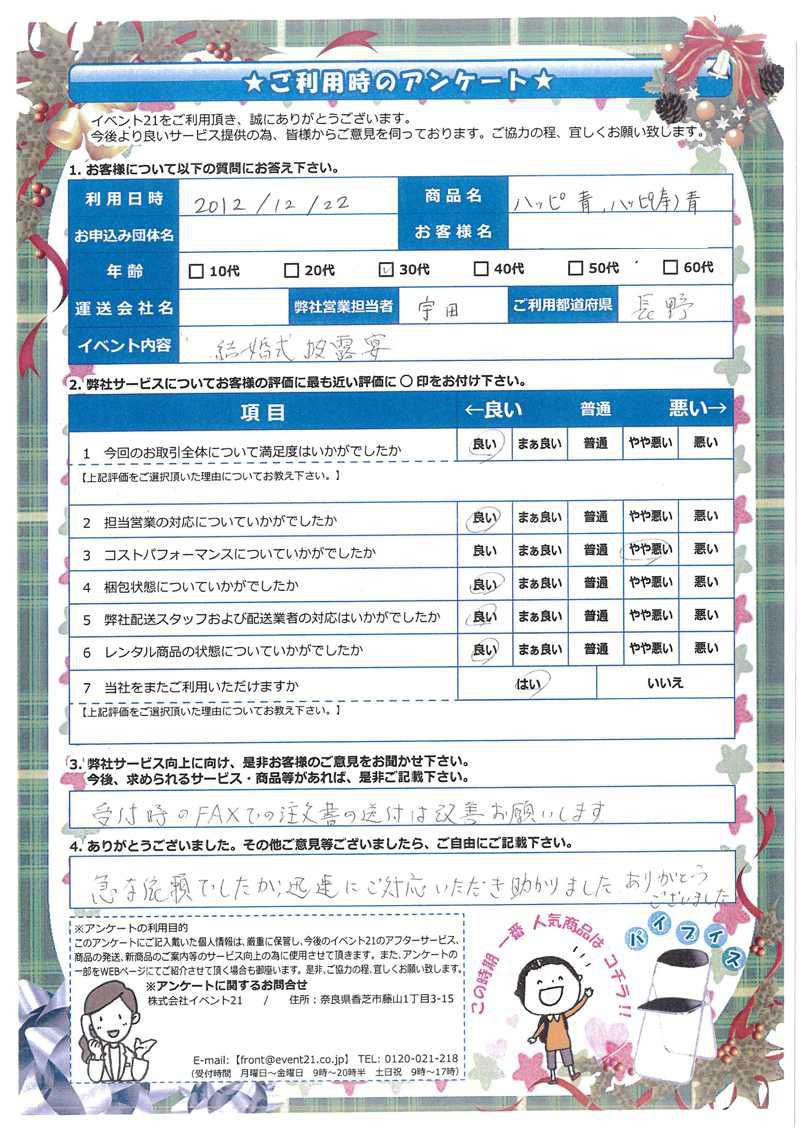 ★ご利用時のアンケート★
イベント21をご利用頂き、誠にありがとうございます。
今後より良いサービス提供の為、皆様からご意見を伺っております。ご協力の程、宜しくお願い致します。
1. お客様について以下の質問にお答え下さい。
利用日時 2012/12/22 商品名 ハッピ青,ハッピ(寿)青
お申込み団体名 お客様名
年齢 10代 20代 30代 40代 50代 60代
運送会社名 弊社営業担当者 宇田 ご利用都道府県 長野
イベント内容 結婚式披露宴
2. 弊社サービスについてお客様の評価に最も近い評価に ○ 印をお付け下さい。
項目 ←良い 普通 悪い→
1 今回のお取引全体について満足度はいかがでしたか 良い まぁ良い 普通 やや悪い 悪い
【上記評価をご選択頂いた理由についてお教え下さい。】
2 担当営業の対応についていかがでしたか 良い まぁ良い 普通 やや悪い 悪い
3 コストパフォーマンスについていかがでしたか 良い まぁ良い 普通 やや悪い 悪い
4 梱包状態についていかがでしたか 良い まぁ良い 普通 やや悪い 悪い
5 弊社配送スタッフおよび配送業者の対応はいかがでしたか 良い まぁ良い 普通 やや悪い 悪い
6 レンタル商品の状態についていかがでしたか 良い まぁ良い 普通 やや悪い 悪い
7 当社をまたご利用いただけますか はい いいえ
【上記評価をご選択頂いた理由についてお教え下さい。】
3. 弊社サービス向上に向け、是非お客様のご意見をお聞かせ下さい。
今後、求められるサービス・商品等があれば、是非ご記載下さい。
受付時のFAXでの注文書の送付は改善お願いします
4. ありがとうございました。その他ご意見等ございましたら、ご自由にご記載下さい。
急な依頼でしたが、迅速にご対応いただき助かりました ありがとう
ございました
※アンケートの利用目的
このアンケートにご記入戴いた個人情報は、厳重に保管し、今後のイベント21のアフターサービス、
商品の発送、新商品のご案内等のサービス向上の為に使用させて頂きます。また、アンケートの
一部をWEBページにてご紹介させて頂く場合も御座います。是非、ご協力の程、宜しくお願い致します。
※アンケートに関するお問合せ
株式会社イベント21 / 住所:奈良県香芝市藤山1丁目3-15
E-mail:【front@event21.co.jp】 TEL: 0120-021-218
(受付時間 月曜日〜金曜日 9時〜20時半 土日祝 9時〜17時)
この時期 一番 人気商品は コチラ!!
パイプイス